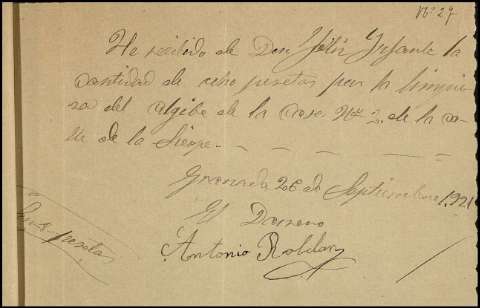 Nº 29
He recibido de Don Félix Infante la
cantidad de ocho pesetas por la limpie
za del algibe de la casa Nº 2 de la ca-
lle de la Sierpe
Granada 26 de Septiembre 1921
El Darrero
Antonio Roldan
pesetas